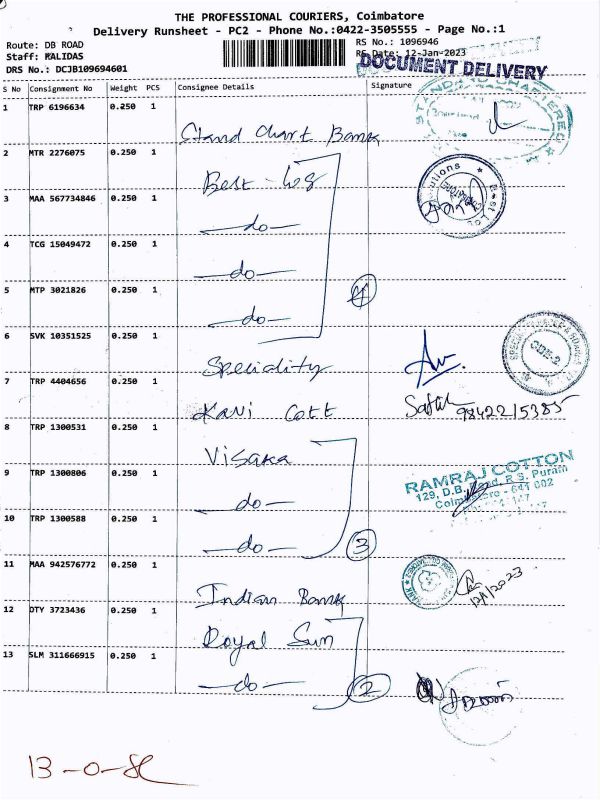 THE PROFESSIONAL COURIERS, Coimbatore
Delivery Runsheet - PC2 - Phone No.:0422-3505555 - Page No.:1
Route: DB ROAD
Staff: KALIDAS
DRS No.: DCJB109694601
RS No.: 1096946
RS Date: 12-Jan-2023
DOCUMENT DELIVERY
S No Consignment No Weight PCS Consignee Details Signature
1 TRP 6196634 0.250 1 Stand Chart Bank
2 MTR 2276075 0.250 1 Best - Log
3 MAA 567734846 0.250 1 —do—
4 TCG 15049472 0.250 1 —do—
5 MTP 3021826 0.250 1 —do— 4
6 SVK 10351525 0.250 1 Speciality
7 TRP 4404656 0.250 1 Kavi Cott 9842215385
8 TRP 1300531 0.250 1 Visaka
9 TRP 1300806 0.250 1 —do—
RAMRAJ COTTON
129, D.B. Road, R.S. Puram
Coimbatore - 641 002
10 TRP 1300588 0.250 1 —do— 3
11 MAA 942576772 0.250 1 Indian Bank
12 OTY 3723436 0.250 1 Royal Sun
13 SLM 311666915 0.250 1 —do— 2